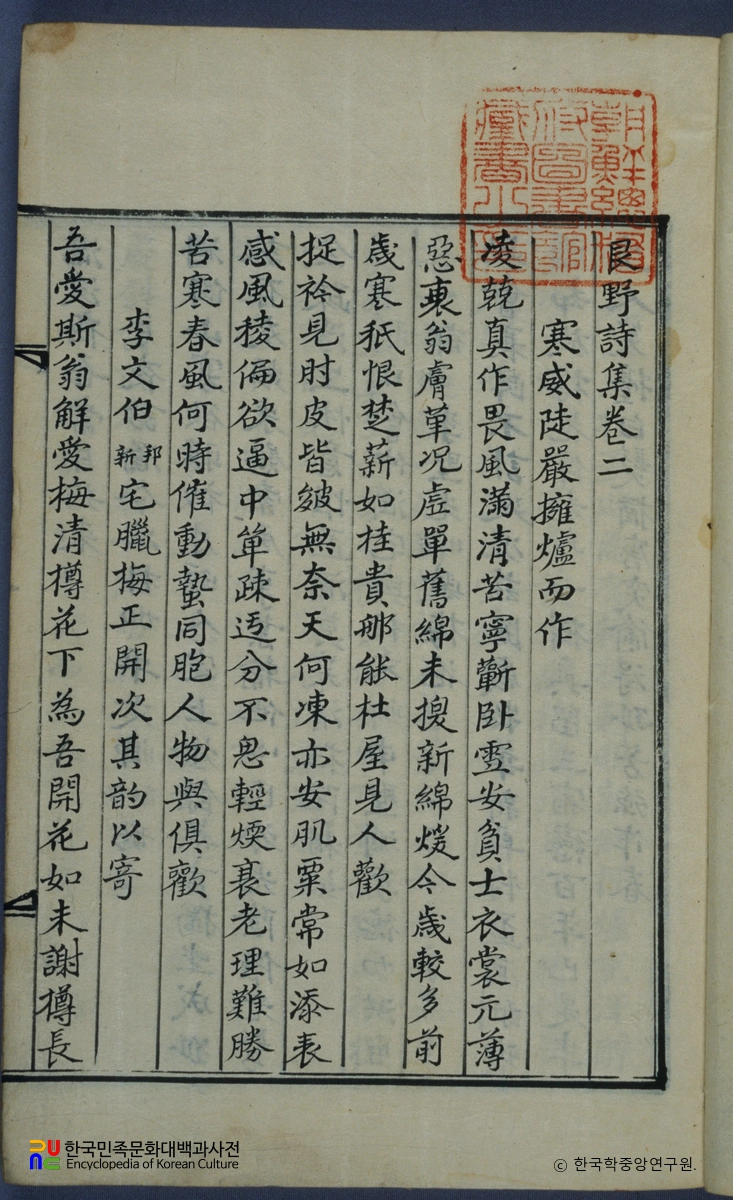 朝鮮總督
府圖書館
藏書之印
艮野詩集卷二
寒威陡嚴擁爐而作
凌兢真作畏風滿清苦寧蘄卧雪安貧士衣裳元薄
惡衰翁膚革况虗單舊綿未換新綿煖今歲較多前
歲寒秖恨楚薪如桂貴那能杜屋見人歡
捉衿見肘皮皆皴無奈天何凍亦安肌粟常如添表
感風稜偏欲逼中單疎迃分不思輕煖衰老理難勝
苦寒春風何時催動蟄同胞人物與俱歡
李文伯新邦宅臘梅正開次其韵以寄
吾愛斯翁解愛梅清樽花下為吾開花如未謝樽長
한국민족문화대백과사전
Encyclopedia of Korean Culture
ⓒ 한국학중앙연구원.